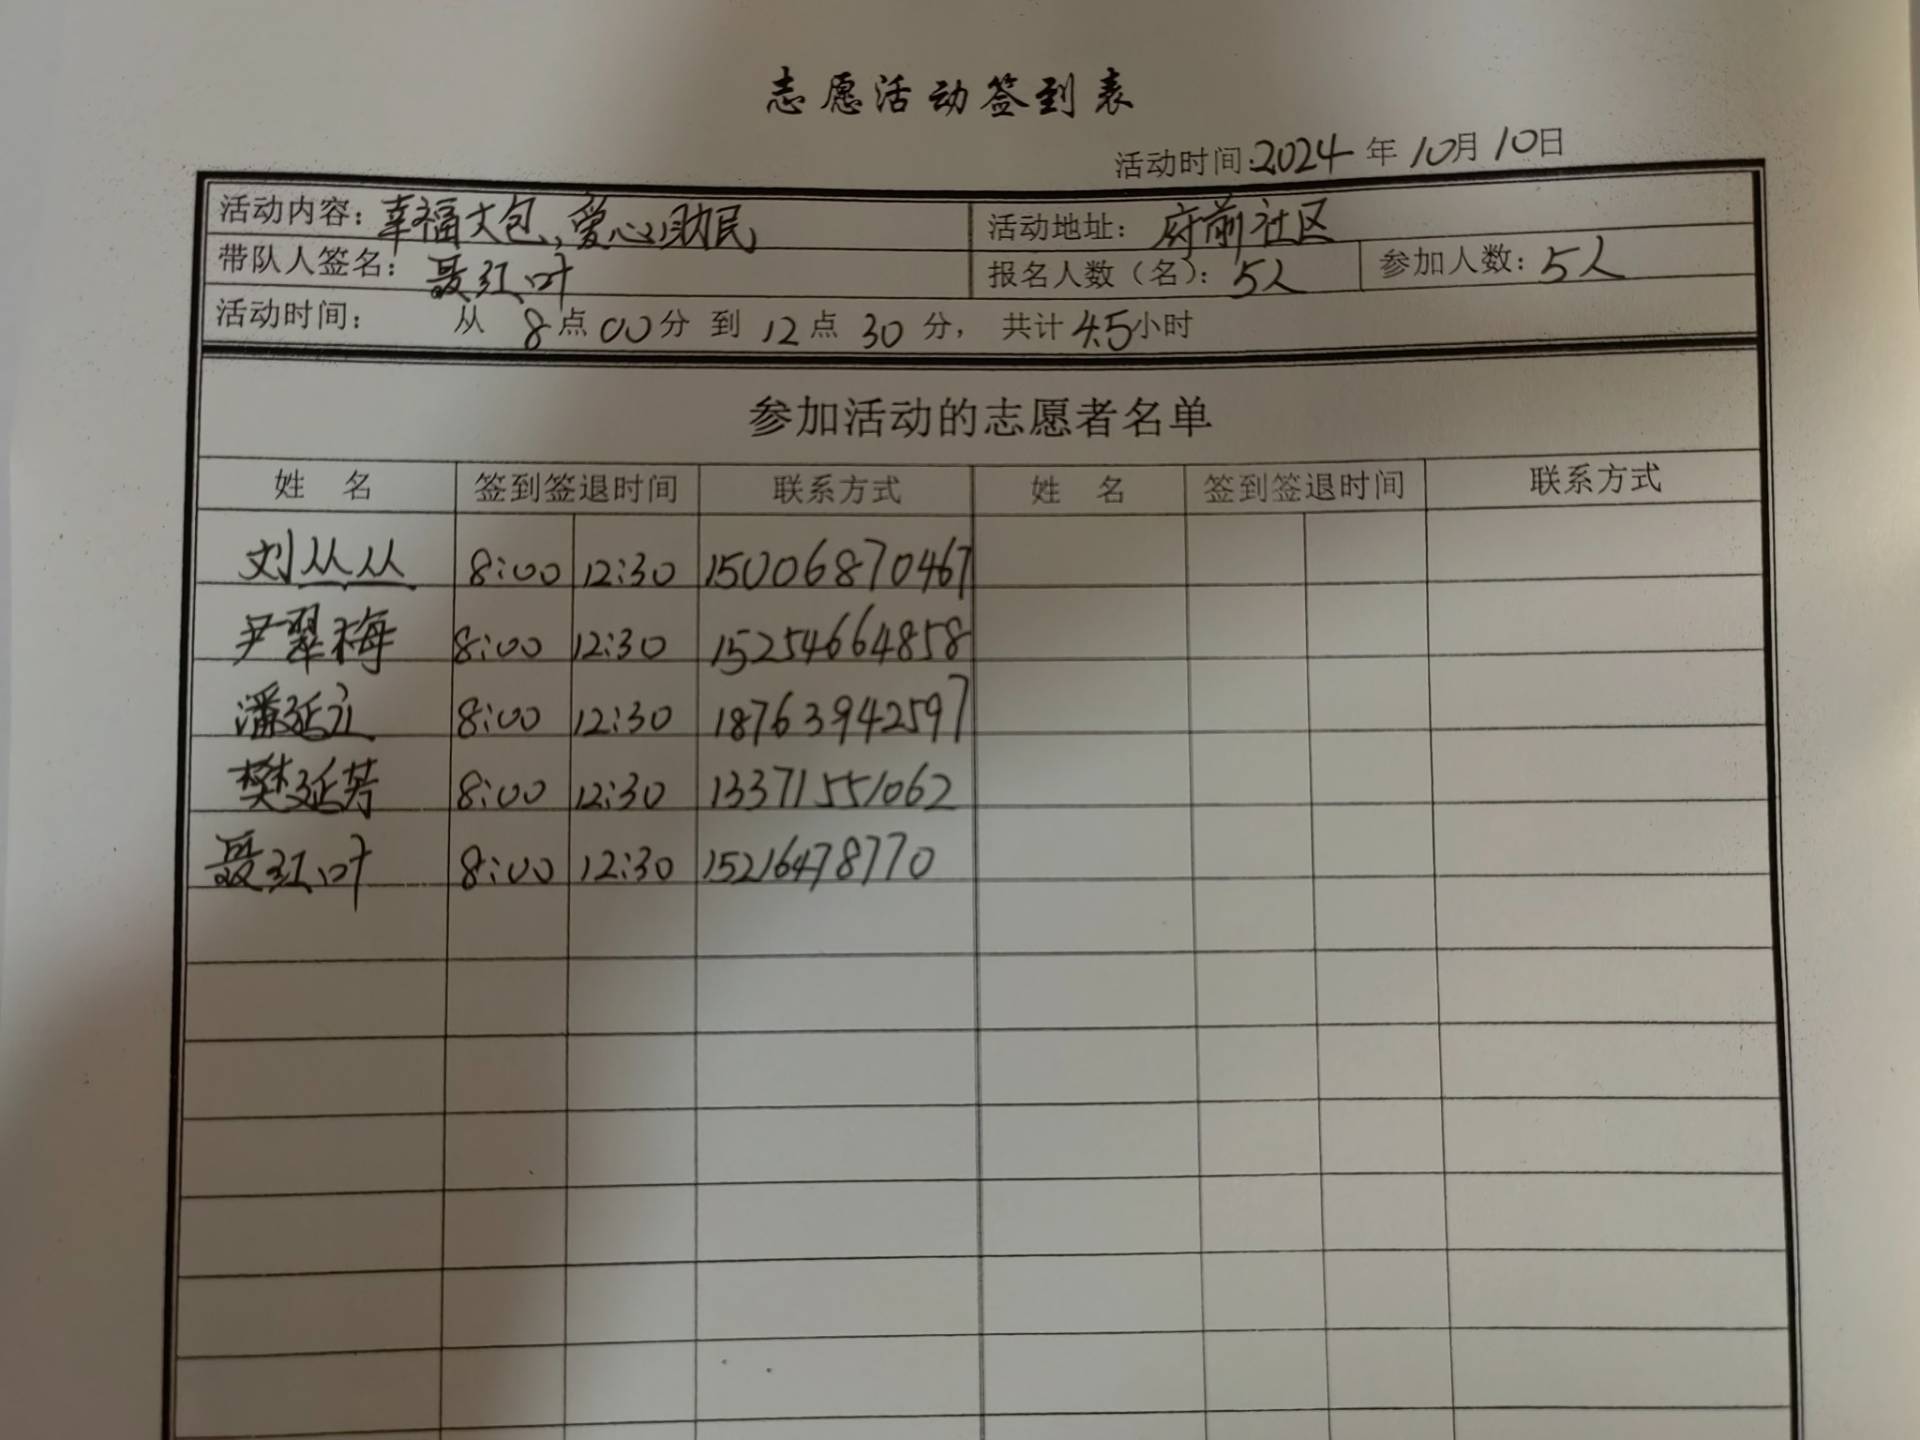 志愿活动签到表
活动时间:2024年10月10日
活动内容:幸福大包,爱心助民 活动地址:府前社区
带队人签名:聂红叶 报名人数(名):5人 参加人数:5人
活动时间: 从 8点00分 到 12点 30分, 共计4.5小时
参加活动的志愿者名单
姓 名 签到签退时间 联系方式 姓 名 签到签退时间 联系方式
刘丛丛 8:00 12:30 15006870467
尹翠梅 8:00 12:30 15254664858
潘延立 8:00 12:30 18763942597
樊延芳 8:00 12:30 13371551062
聂红叶 8:00 12:30 15216478770